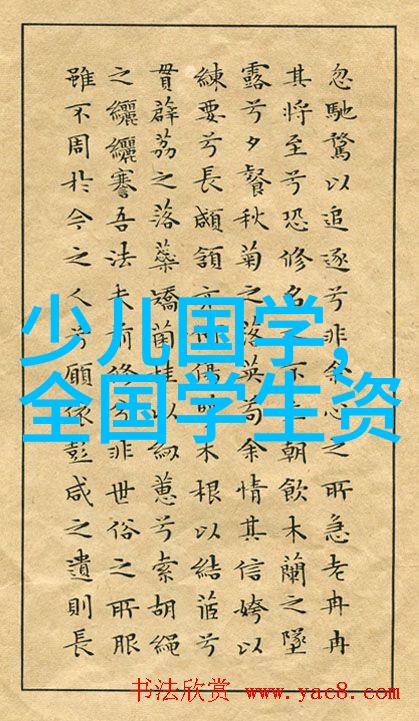 忽馳騖以追逐兮非余心之所急老冉冉
其將至兮恐修名之不立朝飲木蘭之墜
露兮夕餐秋菊之落英苟余情其信姱以
練要兮長顑頷亦何傷木根以結茝兮
貫薜荔之落蘂矯菌桂以紉蕙兮索胡繩
之纚纚謇吾法夫前修兮非世俗之所服
雖不周於今之人兮願依彭咸之遺則長
少儿国学,
全国学生资
书法欣赏 www.yac8.com